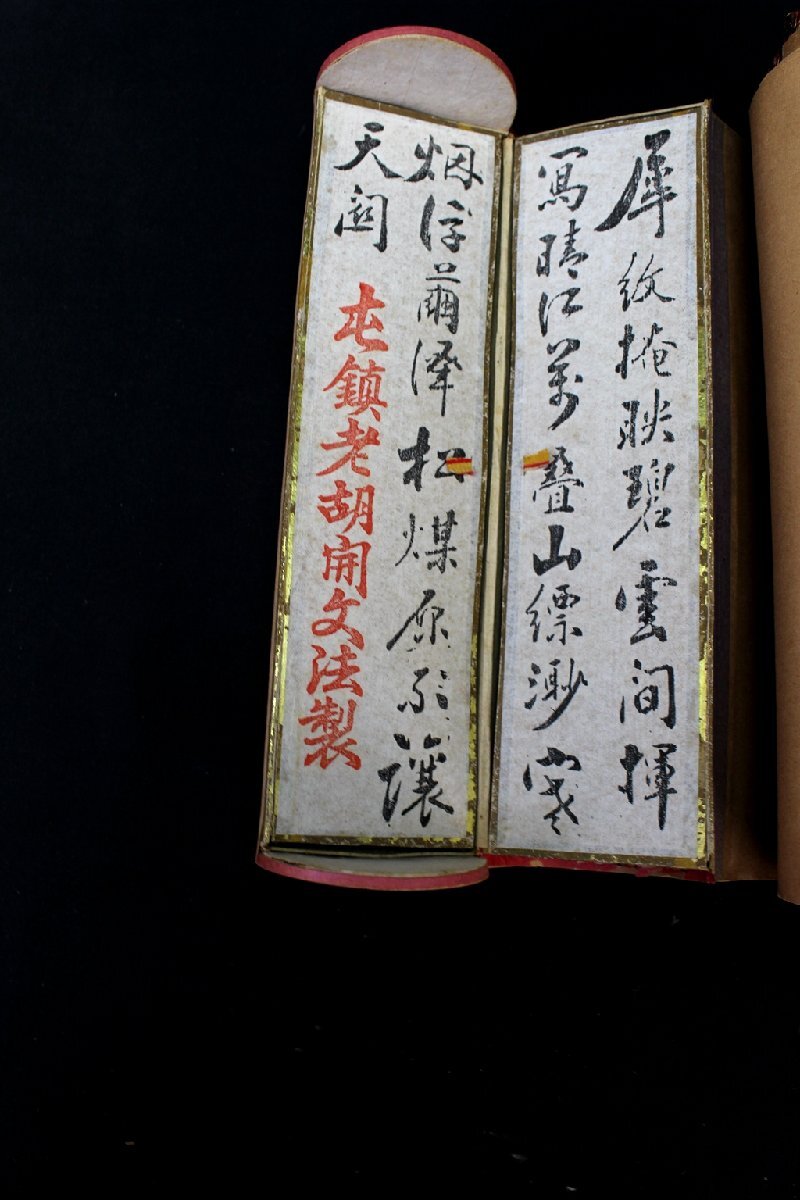 犀紋掩映碧雲間揮
寫晴江萬疊山縹渺寒
烟浮繭澤松煤原不讓
天關
屯鎮老胡開文法製